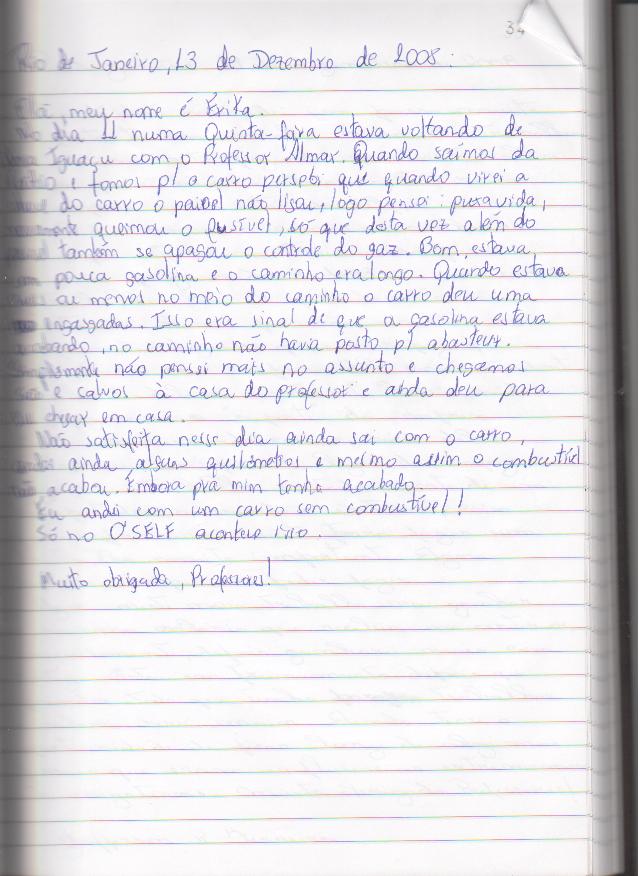 34
Rio de Janeiro, 13 de Dezembro de 2008.
Olá, meu nome é Érika.
No dia 11 numa Quinta-feira estava voltando de
Iguaçu com o Professor Almar. Quando saímos da
e fomos p/ o carro persebi que quando virei a
chave do carro o painel não ligou, logo pensei: puxa vida,
novamente queimou o fusível, só que desta vez além do
painel também se apagou o controle do gaz. Bom, estava,
com pouca gasolina e o caminho era longo. Quando estava
mais ou menos no meio do caminho o carro deu uma
engasgadas. Isso era sinal de que a gasolina estava
acabando, no caminho não havia posto p/ abastecer.
Simplesmente não pensei mais no assunto e chegamos
e salvos à casa do professor e ainda deu para
eu chegar em casa.
Não satisfeita nesse dia ainda sai com o carro,
andei ainda alguns quilômetros e mesmo assim o combustível
não acabou. Embora pra mim tenha acabado.
Eu andei com um carro sem combustível!
Só no O'SELF acontece isso.
Muito obrigada, Professores!